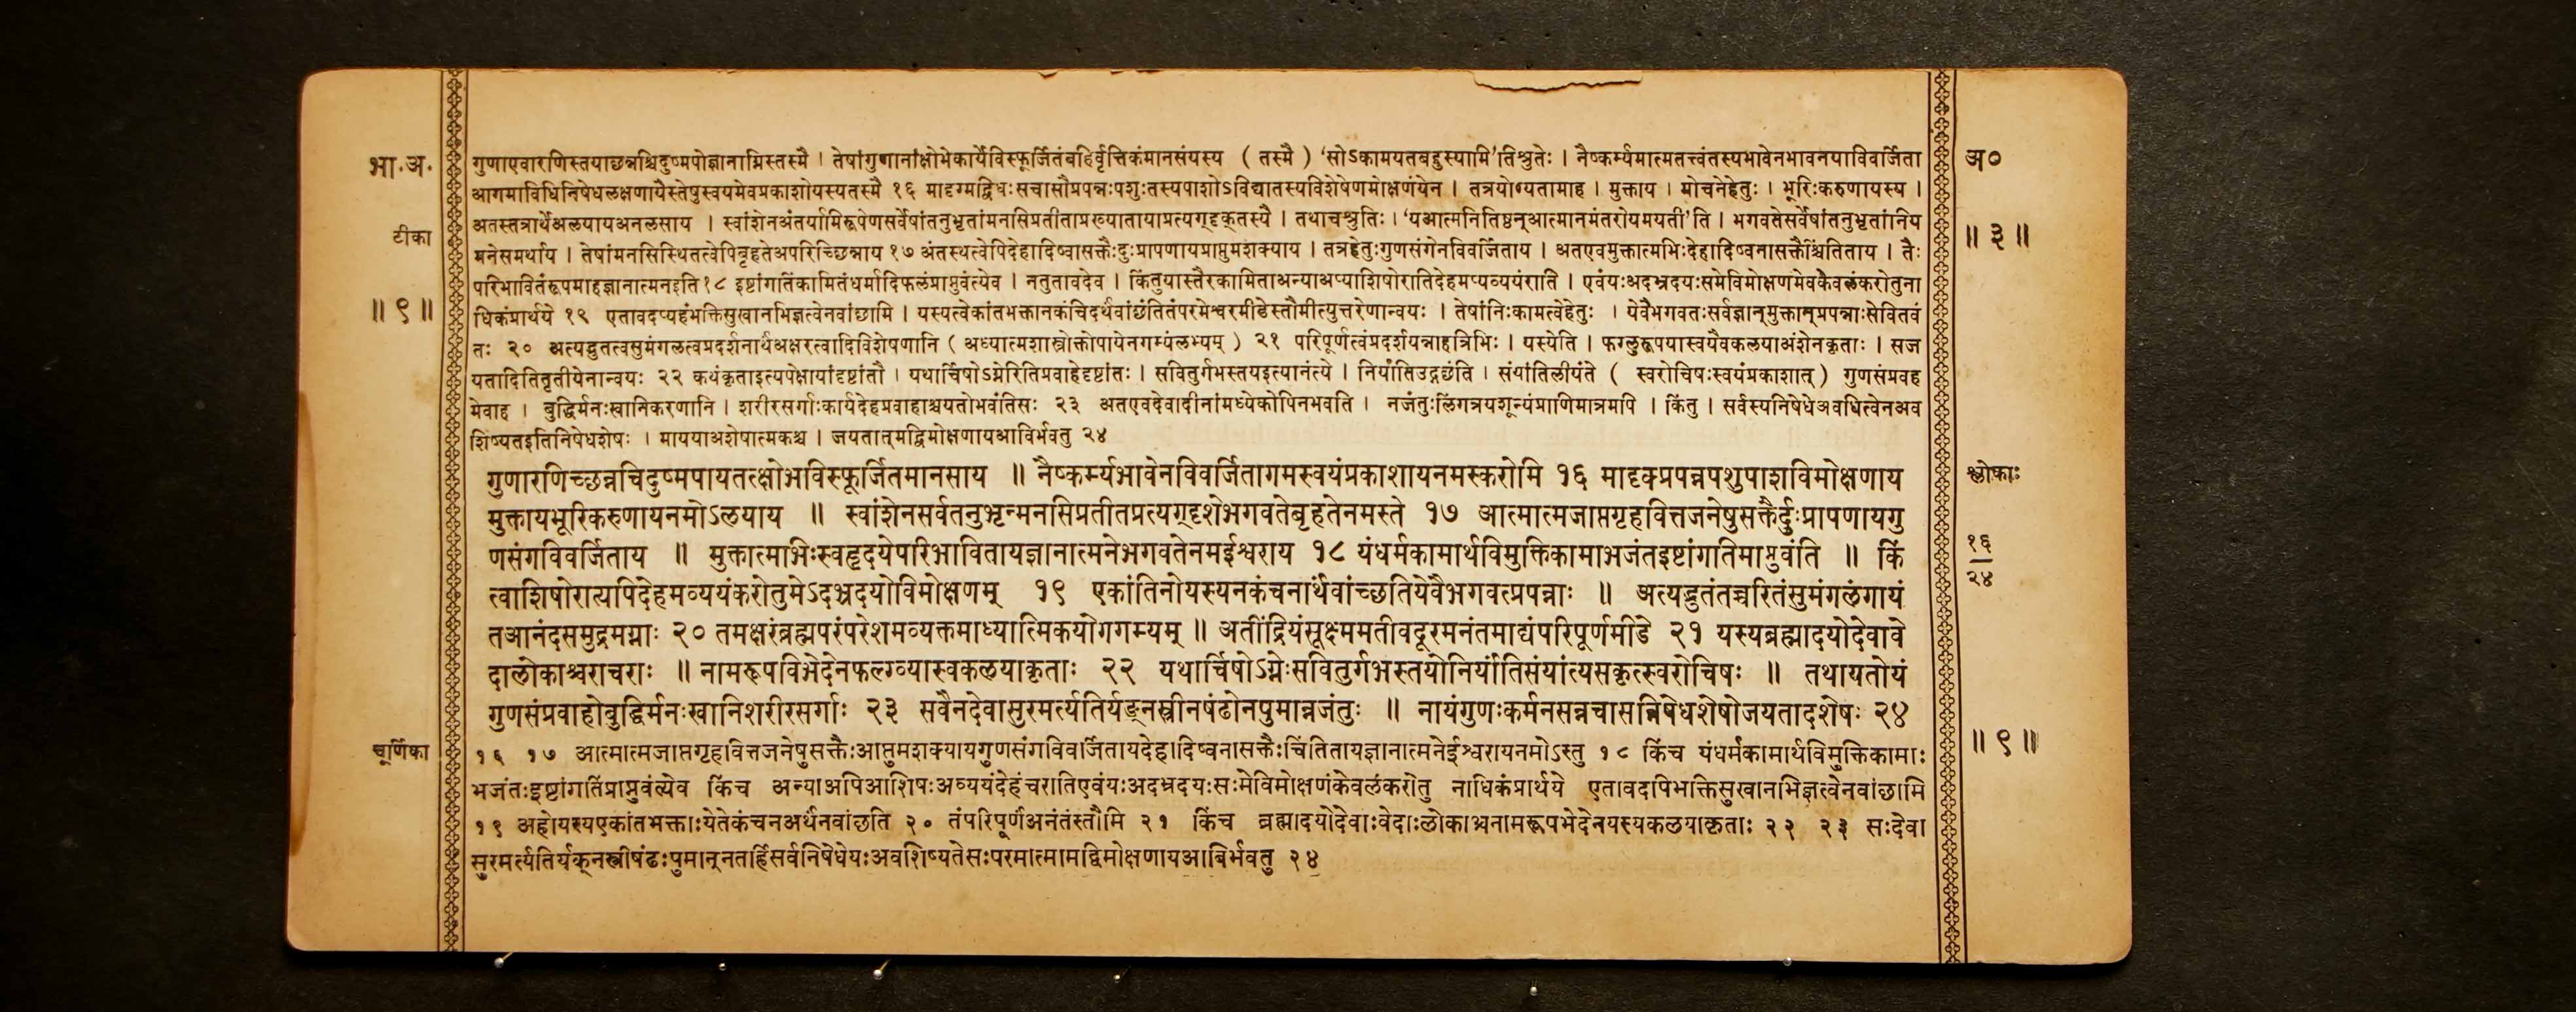 भा.अ.
टीका
॥ ९ ॥
चूर्णिका
गुणाएवारणिस्तयाछन्नश्चिदुष्मपोज्ञानाग्निस्तस्मै । तेषांगुणानांक्षोभेकार्येविस्फूर्जितंबहिर्वृत्तिकंमानसंयस्य ( तस्मै ) ‘सोऽकामयतबहुस्यामि’तिश्रुतेः । नैष्कर्म्यमात्मतत्त्वंतस्यभावेनभावनयाविवर्जिता
आगमाविधिनिषेधलक्षणायैस्तेषुस्वयमेवप्रकाशोयस्यतस्मै १६ मादृग्मद्विधःसचासौप्रपन्नःपशुःतस्यपाशोऽविद्यातस्यविशेषेणमोक्षणंयेन । तत्रयोग्यतामाह । मुक्ताय । मोचनेहेतुः । भूरिःकरुणायस्य ।
अतस्तत्रार्थेअलयायअनलसाय । स्वांशेनअंतर्यामिरूपेणसर्वेषांतनुभृतांमनसिप्रतीताप्रख्यातायाप्रत्यग्दृक्तस्यै । तथाचश्रुतिः । ‘यआत्मनितिष्ठन्आत्मानमंतरोयमयती’ति । भगवतेसर्वेषांतनुभृतांनिय
मनेसमर्थाय । तेषांमनसिस्थितत्वेपिबृहतेअपरिच्छिन्नाय १७ अंतस्थत्वेपिदेहादिष्वासक्तैःदुःप्रापणायप्राप्तुमशक्याय । तत्रहेतुःगुणसंगेनविवर्जिताय । अतएवमुक्तात्मभिःदेहादिष्वनासक्तैश्चिंतिताय । तैः
परिभावितंरूपमाहज्ञानात्मनइति १८ इष्टांगतिंकामितंधर्मादिफलंप्राप्नुवंत्येव । नतुतावदेव । किंतुयास्तैरकामिताअन्याअप्याशिषोरातिदेहमप्यव्ययंराति । एवंयःअदभ्रदयःसमेविमोक्षणमेवकैवलंकरोतुना
धिकंप्रार्थये १९ एतावदप्यहंभक्तिसुखानभिज्ञत्वेनवांछामि । यस्यत्वेकांतभक्तानकंचिदर्थंवांछंतितंपरमेश्वरमीडेस्तौमीत्युत्तरेणान्वयः । तेषांनिःकामत्वेहेतुः । येवैभगवतःसर्वज्ञान्मुक्तान्प्रपन्नाःसेवितवं
तः २० अत्यद्भुतत्वसुमंगलत्वप्रदर्शनार्थंअक्षरत्वादिविशेषणानि ( अध्यात्मशास्त्रोक्तोपायेनगम्यंलभ्यम् ) २१ परिपूर्णत्वंप्रदर्शयन्नाहत्रिभिः । यस्येति । फल्गुरूपयास्वयैवकलयाअंशेनकृताः । सज
यतादितितृतीयेनान्वयः २२ कथंकृताइत्यपेक्षायांदृष्टांतौ । यथार्चिषोऽग्नेरितिप्रवाहेदृष्टांतः । सवितुर्गभस्तयइत्यानंत्ये । निर्यांतिउद्गछंति । संयांतिलीयंते ( स्वरोचिषःस्वयंप्रकाशात् ) गुणसंप्रवह
मेवाह । बुद्धिर्मनःखानिकरणानि । शरीरसर्गाःकार्यदेहप्रवाहाश्चयतोभवंतिसः २३ अतएवदेवादीनांमध्येकोपिनभवति । नजंतुःलिंगत्रयशून्यंप्राणिमात्रमपि । किंतु । सर्वस्यनिषेधेअवधित्वेनअव
शिष्यतइतिनिषेधशेषः । माययाअशेषात्मकश्च । जयतात्मद्विमोक्षणायआविर्भवतु २४
गुणारणिच्छन्नचिदुष्मपायतत्क्षोभविस्फूर्जितमानसाय ॥ नैष्कर्म्यभावेनविवर्जितागमस्वयंप्रकाशायनमस्करोमि १६ मादृक्प्रपन्नपशुपाशविमोक्षणाय
मुक्तायभूरिकरुणायनमोऽलयाय ॥ स्वांशेनसर्वतनुभृन्मनसिप्रतीतप्रत्यग्दृशेभगवतेबृहतेनमस्ते १७ आत्मात्मजाप्तगृहवित्तजनेषुसक्तैर्दुःप्रापणायगु
णसंगविवर्जिताय ॥ मुक्तात्माभिःस्वहृदयेपरिभावितायज्ञानात्मनेभगवतेनमईश्वराय १८ यंधर्मकामार्थविमुक्तिकामाभजंतइष्टांगतिमाप्नुवंति ॥ किं
त्वाशिषोरात्यपिदेहमव्ययंकरोतुमेऽदभ्रदयोविमोक्षणम् १९ एकांतिनोयस्यनकंचनार्थंवांच्छतियेवैभगवत्प्रपन्नाः ॥ अत्यद्भुतंतच्चरितंसुमंगलंगायं
तआनंदसमुद्रमग्नाः २० तमक्षरंब्रह्मपरंपरेशमव्यक्तमाध्यात्मिकयोगगम्यम् ॥ अतींद्रियंसूक्ष्ममतीवदूरमनंतमाद्यंपरिपूर्णमीडे २१ यस्यब्रह्मादयोदेवावे
दालोकाश्चराचराः ॥ नामरूपविभेदेनफल्ग्व्यास्वकलयाकृताः २२ यथार्चिषोऽग्नेःसवितुर्गभस्तयोनिर्यांतिसंयांत्यसकृत्स्वरोचिषः ॥ तथायतोयं
गुणसंप्रवाहोबुद्धिर्मनःखानिशरीरसर्गाः २३ सवैनदेवासुरमर्त्यतिर्यङ्नस्त्रीनषंढोनपुमान्नजंतुः ॥ नायंगुणःकर्मनसन्नचासन्निषेधशेषोजयतादशेषः २४
१६ १७ आत्मात्मजाप्तगृहवित्तजनेषुसक्तैःआप्तुमशक्यायगुणसंगविवर्जितायदेहादिष्वनासक्तैःचिंतितायज्ञानात्मनेईश्वरायनमोऽस्तु १८ किंच यंधर्मकामार्थविमुक्तिकामाः
भजंतःइष्टांगतिंप्राप्नुवंत्येव किंच अन्याअपिआशिषःअव्ययंदेहंचरातिएवंयःअदभ्रदयःसःमेविमोक्षणंकेवलंकरोतु नाधिकंप्रार्थये एतावदपिभक्तिसुखानभिज्ञत्वेनवांछामि
१९ अहोयस्यएकांतभक्ताःयेतेकंचनअर्थंनवांछति २० तंपरिपूर्णंअनंतंस्तौमि २१ किंच ब्रह्मादयोदेवाःवेदाःलोकाश्चनामरूपभेदेनयस्यकलयाकृताः २२ २३ सःदेवा
सुरमर्त्यतिर्यक्नस्त्रीषंढःपुमान्नतर्हिसर्वनिषेधेयःअवशिष्यतेसःपरमात्मामद्विमोक्षणायआबिर्भवतु २४
अ०
॥ ३ ॥
श्लोकाः
१६
२४
॥ ९ ॥